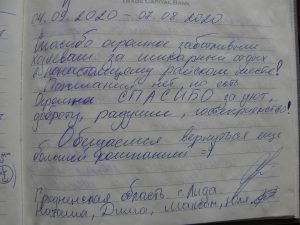 TRADE CAPITAL BANK
04.09.2020 – 07.08.2020
Спасибо огромное заботливым
хозяевам за шикарный отдых
в настоящему райском месте!
нет, но есть
Огромное СПАСИБО за уют,
доброту, радушие, гостеприимство!
Обещаемся вернуться еще
большей компанией =)
Гродненская область г. Лида
Наташа, Дима, Максим, Юля